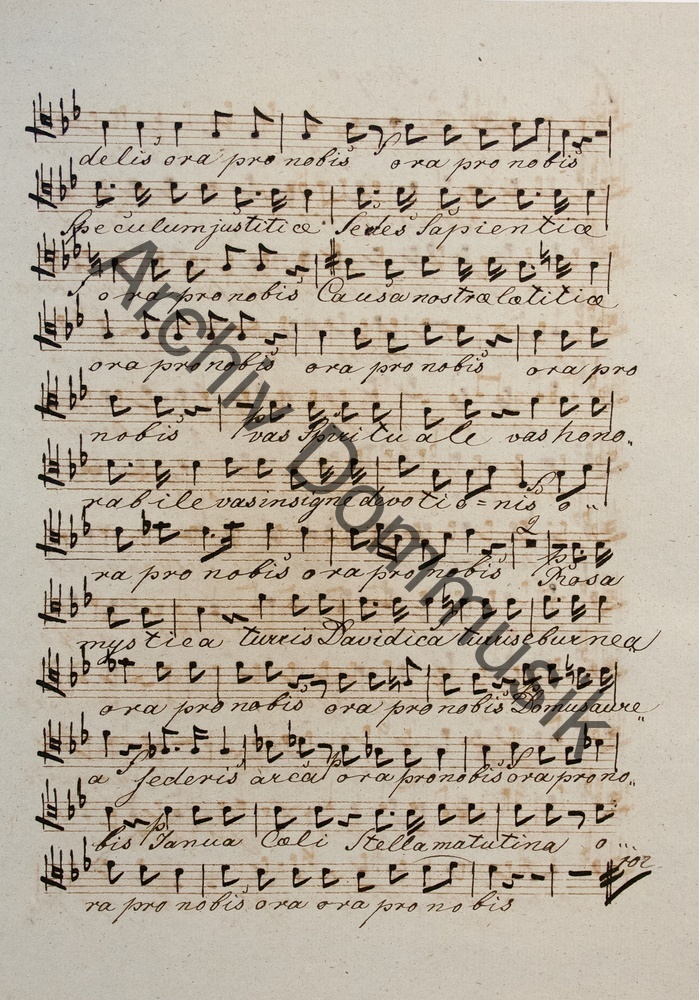 delis ora pro nobis ora pro nobis
Speculum justitiæ Sedes Sapientiæ
o ra pro nobis Causa nostræ lætitiæ
ora pro nobis ora pro nobis ora pro
nobis vas Spirituale vas hono„
rabile vas insigne devotio=nis o„
2
ra pro nobis ora pro nobis Rosa
mystica turris Davidica turris eburnea
ora pro nobis ora pro nobis Domus aure„
a federis arca ora pro nobis ora pro no„
bis Janua Cœli Stella matutina o...
ra pro nobis ora ora pro nobis
Archiv Dommusik